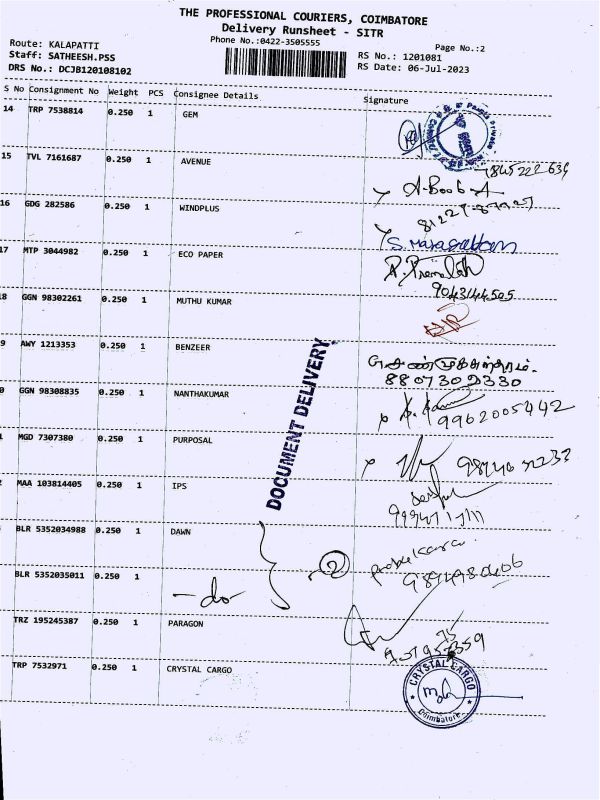 THE PROFESSIONAL COURIERS, COIMBATORE
Delivery Runsheet - SITR
Phone No.:0422-3505555
Page No.:2
Route: KALAPATTI
Staff: SATHEESH.PSS
DRS No.: DCJB120108102
RS No.: 1201081
RS Date: 06-Jul-2023
S No Consignment No Weight PCS Consignee Details Signature
14 TRP 7538814 0.250 1 GEM
15 TVL 7161687 0.250 1 AVENUE
A. Boob A
16 GDG 282586 0.250 1 WINDPLUS
17 MTP 3044982 0.250 1 ECO PAPER
9043144505
8 GGN 98302261 0.250 1 MUTHU KUMAR
9 AWY 1213353 0.250 1 BENZEER
8807302330
0 GGN 98308835 0.250 1 NANTHAKUMAR
9962005442
DOCUMENT DELIVERY
1 MGD 7307380 0.250 1 PURPOSAL
2 MAA 103814405 0.250 1 IPS
BLR 5352034988 0.250 1 DAWN
2
BLR 5352035011 0.250 1
-do-
TRZ 195245387 0.250 1 PARAGON
TRP 7532971 0.250 1 CRYSTAL CARGO
CRYSTAL CARGO
Coimbatore